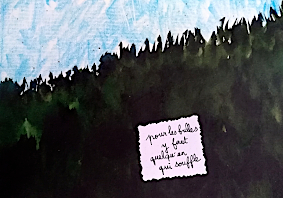 pour les bulles
y faut
quelqu'un
qui souffle